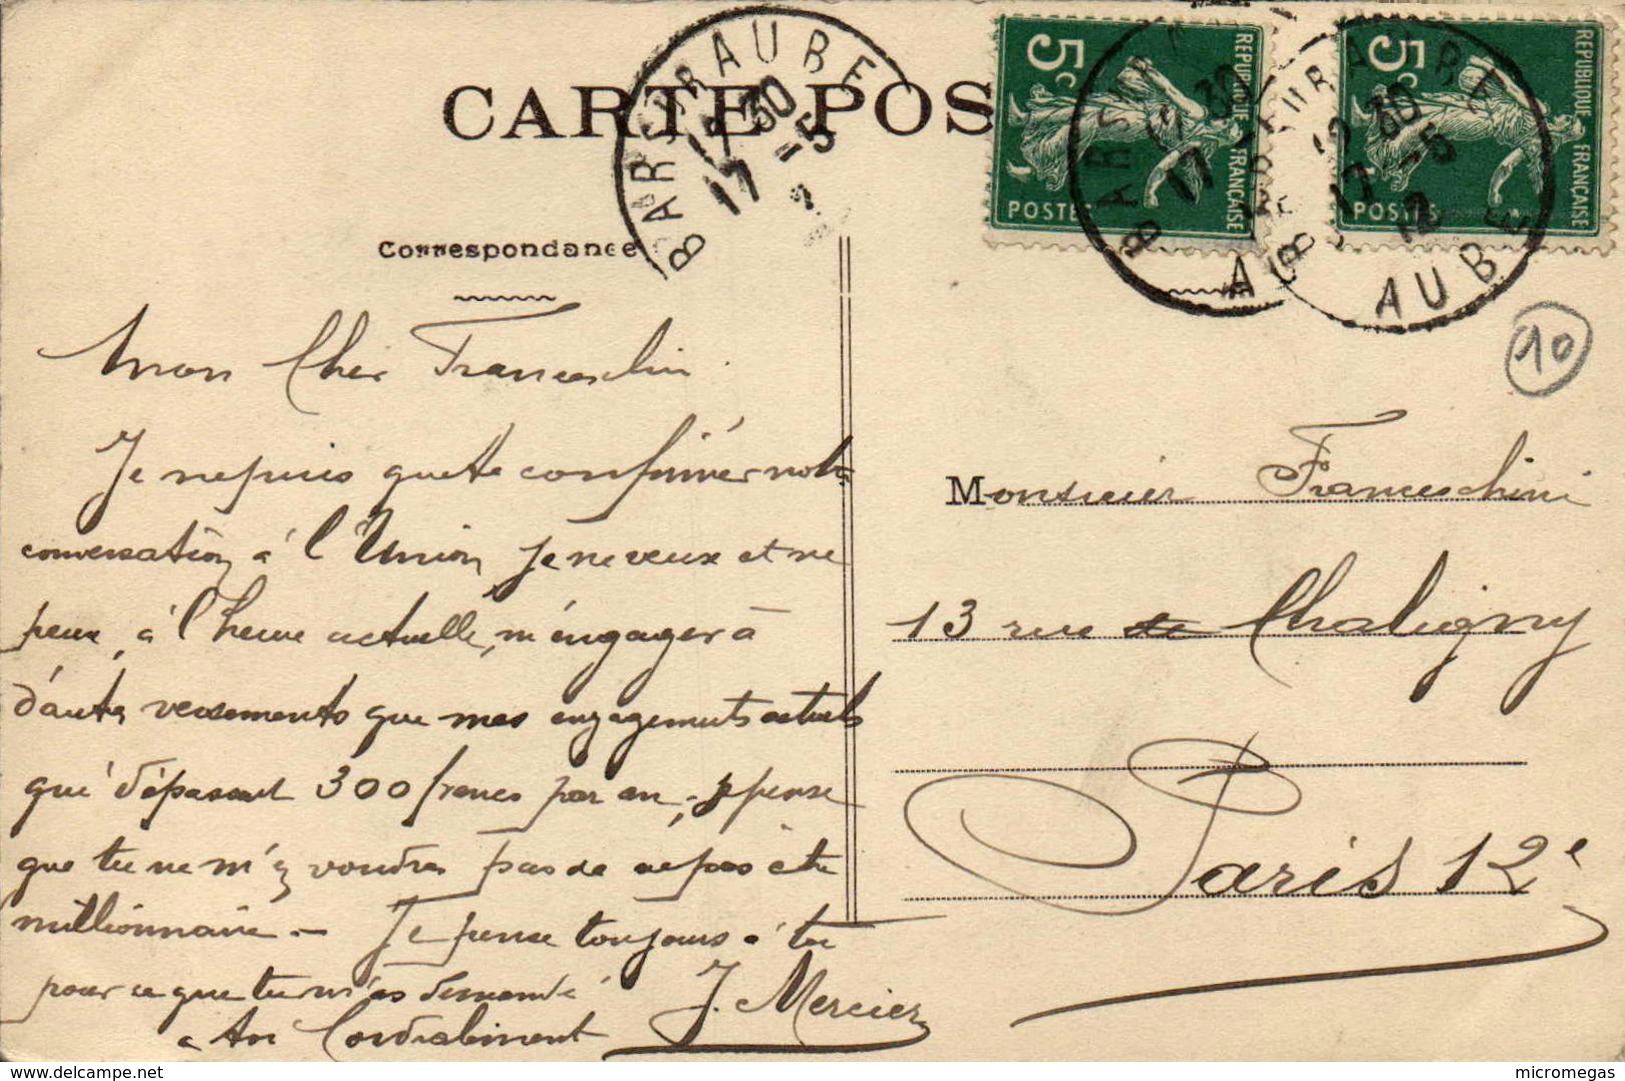 CARTE POS
BAR SUR AUBE
17 30
17 -5
5c
REPUBLIQUE FRANÇAISE
POSTES
BAR SUR AUBE
17 30
17
AUBE
5c
REPUBLIQUE FRANÇAISE
POSTES
BAR SUR AUBE
12 30
17 -5
12
AUBE
10
Correspondance
Mon Cher Franceschini
Je ne puis que te confirmer notre
conversation à l'Union Je ne veux et ne
peux, à l'heure actuelle, m'engager à
d'autres versements que mes engagements actuels
qui dépassent 300 francs par an; je pense
que tu ne m'y voudras pas de ne pas être
millionnaire — Je pense toujours à toi
pour ce que tu m'as demandé
à toi Cordialement
J. Mercier
Monsieur Franceschini
13 rue de Chaligny
Paris 12e
delcampe.net
micromegas